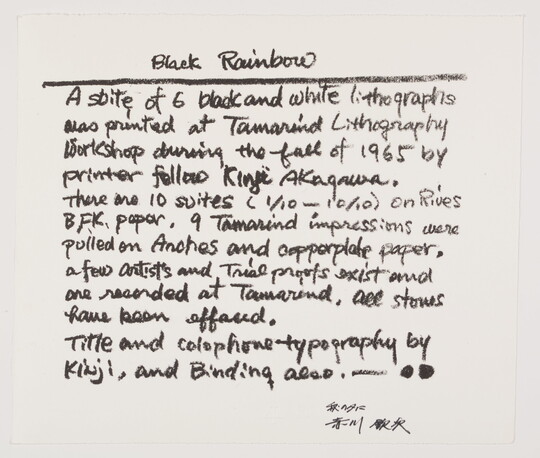 Black Rainbow
A sbite of 6 black and white lithographs
was printed at Tamarind Lithography
Workshop during the fall of 1965 by
printer fellow Kinji Akagawa.
There are 10 suites (1/10 — 10/10) on Rives
B.F.K. paper. 9 Tamarind impressions were
pulled on Arches and copperplate paper.
a few artist's and Trial proofs exist and
are recorded at Tamarind. all stones
have been effaced.
Title and colophone-typography by
Kinji, and Binding also. —
赤川